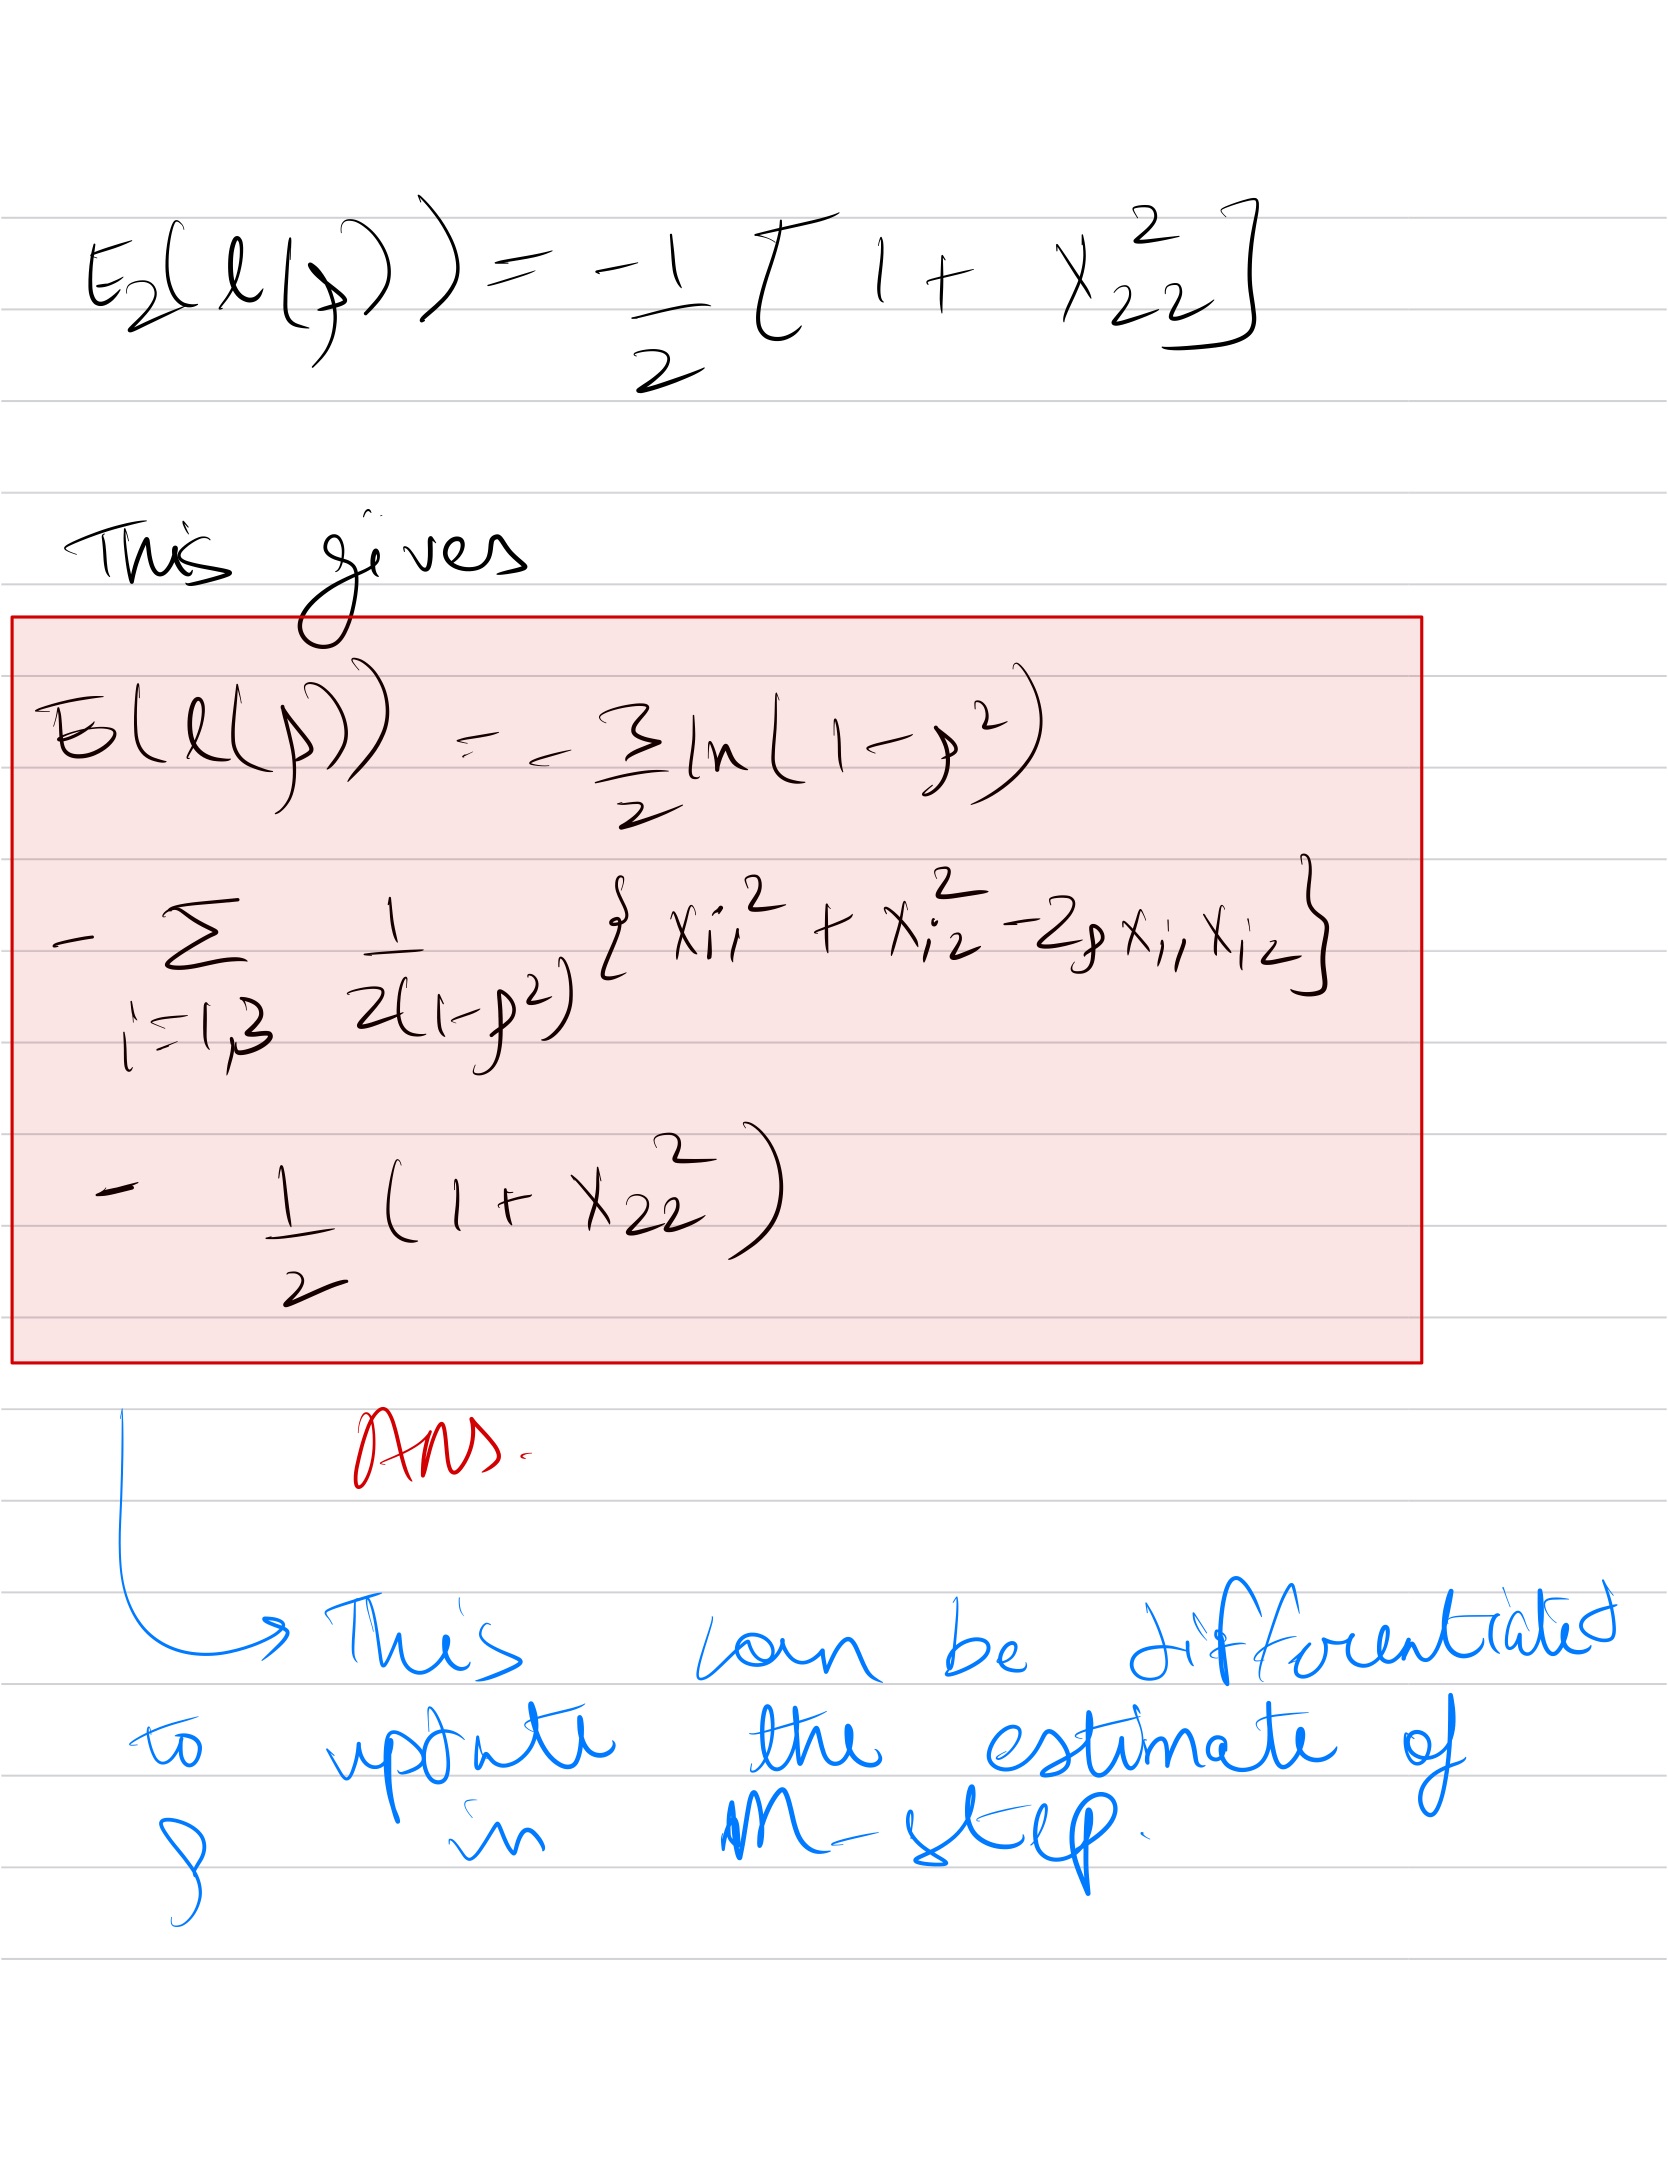 E₂(l(ρ)) = -1/2 [1 + x₂₂²]
This gives
E(l(ρ)) = - 3/2 ln(1-ρ²)
- Σ i=1,3 1/2(1-ρ²) {xᵢ₁² + xᵢ₂² - 2ρxᵢ₁xᵢ₂}
- 1/2 (1 + x₂₂²)
Ans.
This can be differentiated
to update the estimate of
ρ in M-step.